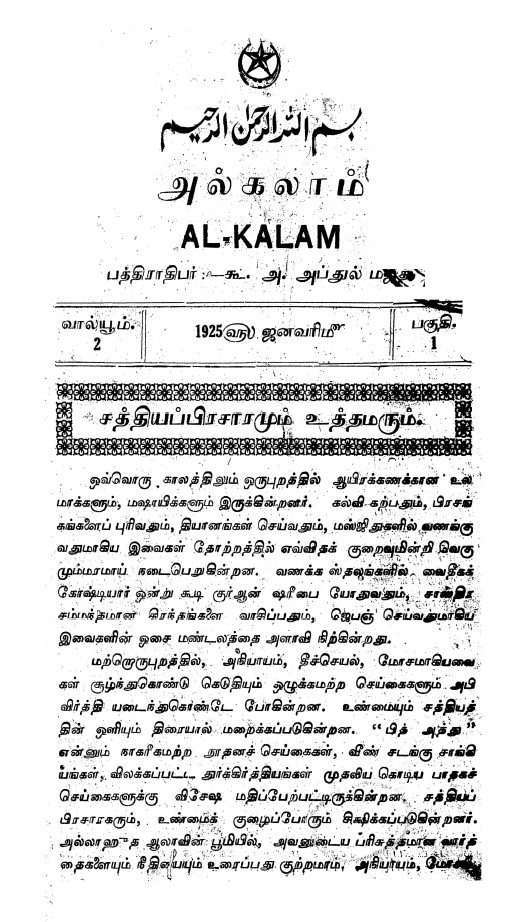 بسم الله الرحمن الرحيم
அல்கலாம்
AL-KALAM
பத்திராதிபர் :—கூ. அ. அப்துல்
வால்யூம். 2
1925௵ ஜனவரி௴
பகுதி. 1
சத்தியப்பிரசாரமும் உத்தமரும்.
ஒவ்வொரு காலத்திலும் ஒருபுறத்தில் ஆயிரக்கணக்கான உல
மாக்களும், மஷாயிக்களும் இருக்கின்றனர். கல்வி கற்பதும், பிரசங்
கங்களைப் புரிவதும், தியானங்கள் செய்வதும், மஸ்ஜிதுகளில் வணங்கு
வதுமாகிய இவைகள் தோற்றத்தில் எவ்விதக் குறைவுமின்றி வெகு
மும்மரமாய் நடைபெறுகின்றன. வணக்க ஸ்தலங்களில் வைதீகக்
கோஷ்டியார் ஒன்று கூடி குர்ஆன் ஷரீபை யோதுவதும், சாஸ்திர
சம்மந்தமான கிரந்தங்களை வாசிப்பதும், ஜெபஞ் செய்வதுமாகிய
இவைகளின் ஓசை மண்டலத்தை அளாவி நிற்கின்றது.
மற்றொருபுறத்தில், அநியாயம், தீச்செயல், மோசமாகியவை
கள் சூழ்ந்துகொண்டு கெடுதியும் ஒழுக்கமற்ற செய்கைகளும் அபி
விர்த்தி யடைந்துகொண்டே போகின்றன. உண்மையும் சத்தியத்
தின் ஒளியும் திரையால் மறைக்கப்படுகின்றன. “பித் அத்து”
என்னும் நாகரீகமற்ற நூதனச் செய்கைகள், வீண் சடங்கு சாங்கி
யங்கள், விலக்கப்பட்ட துர்க்கிர்த்தியங்கள் முதலிய கொடிய பாதகச்
செய்கைகளுக்கு விசேஷ மதிப்பேற்பட்டிருக்கின்றன. சத்தியப்
பிரசாரகரும், உண்மைக் குழைப்போரும் சிக்ஷிக்கப்படுகின்றனர்.
அல்லாஹுத ஆலாவின் பூமியில், அவனுடைய பரிசுத்தமான வார்த்
தைகளையும் நீதியையும் உரைப்பது குற்றமாம், அநியாயம்,